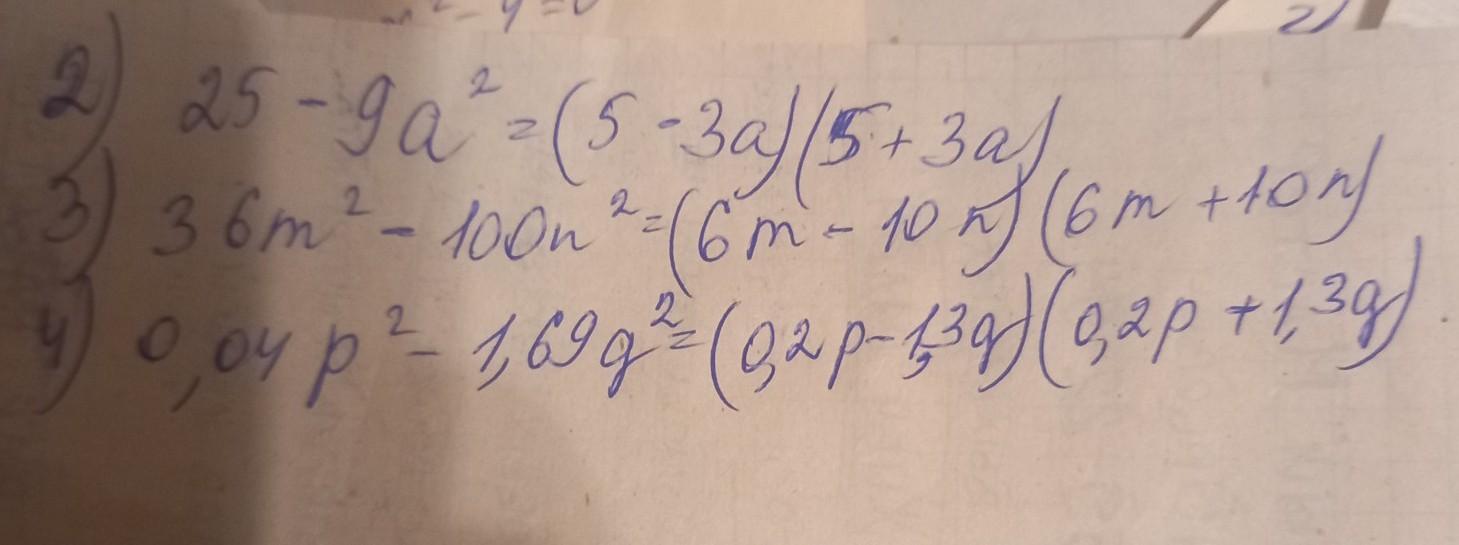 2) 25 - 9a² = (5 - 3a)(5 + 3a)
3) 36m² - 100n² = (6m - 10n)(6m + 10n)
4) 0,04p² - 1,69q² = (0,2p - 1,3q)(0,2p + 1,3q).